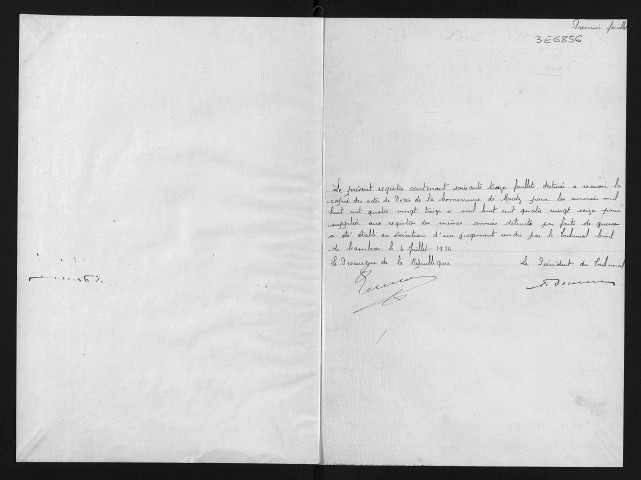 Premier feuillet
3E6856
Le présent registre contenant soixante treize feuillets destiné a recevoir la
copie des actes de Décès de la Commune de pour les années mil
huit cent quatre vingt treize a mil huit cent quatre vingt seize pour
suppléer aux registres des mêmes années détruits par faits de guerre
a été établi en exécution d'un jugement rendu par le Tribunal Civil
de Cambrai le 4 Juillet 1924
Le Procureur de la République
Le Président du Tribunal